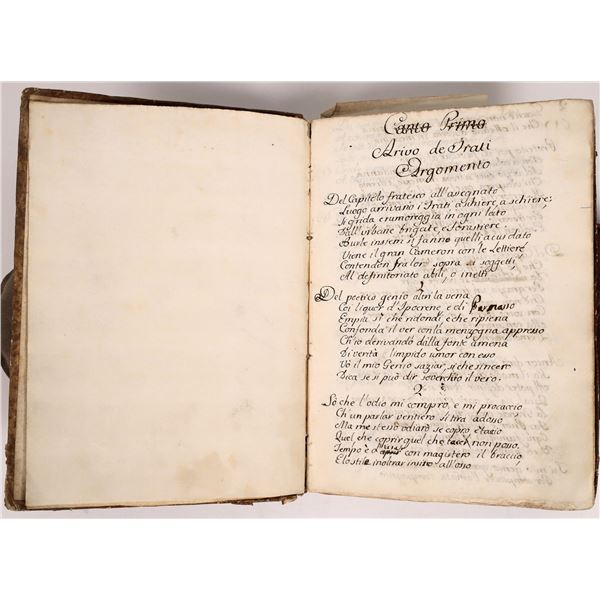 Canto Primo
Arivo de Frati
Argomento
Del Capitolo fratesco all'avegnato
Luogo arrivano i Frati, a schiere, a schiere;
Si grida e rumoreggia in ogni lato
Dall'urbane brigate, e forastiere
Burle insiem si fanno quelli a cui dato
Viene il gran Cameron con le Lettiere
Contendon fra lor sopra i soggetti,
Al definitoriato abili, o inetti
1
Del poetico genio la vena
Coi liquor d'Ipocrene, e di Parnasso
Empita sì che ridondi, e che ripiena
Confonda il ver con la menzogna appresso
Ch'io derivando dalla fonte amena
Diventà limpido umor con esso
Vò il mio Genio saziar, si che sincer
Dica se si può dir soverchio il vero.
2
Sò che l'odio mi compro, e mi procaccio
Ch'un parlar ventiero si tira adosso
Ma me stesso odiarò se copro, e taccio
Quel che coprir quel che tacer non posso,
Tempo è d' con magistero il braccio,
E lo stile inoltrar insino all'osso